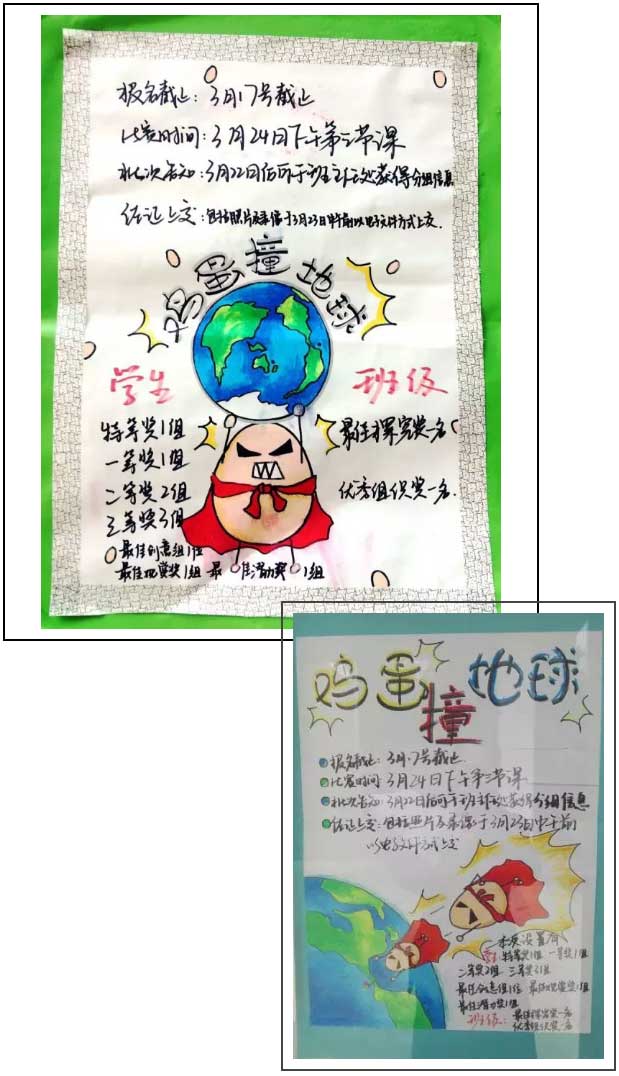 报名截止：3月17号截止
比赛时间：3月24日下午第三节课
批次告知：3月22日后可于班主任处获得分组信息
佐证上交：包括照片及录像于3月23日中午前以电子文件方式上交.
鸡蛋撞地球
学生
班级
特等奖1组
一等奖1组
二等奖2组
三等奖3组
最佳创意组1位
最佳观赏奖1组 最佳潜力奖1组
最佳择窝奖一名
优秀组织奖一名.
鸡蛋撞地球
报名截止：3月17号截止
比赛时间：3月24日下午第三节课
批次告知：3月22日后可于班主任处获得分组信息
佐证上交：包括照片及录像于3月23日中午前
以电子文件方式上交
本次设置有
学生 特等奖1组 一等奖1组
二等奖2组 三等奖3组
最佳创意组1位 最佳观赏奖1组
最佳潜力奖1组
班级：
优秀组织奖一名